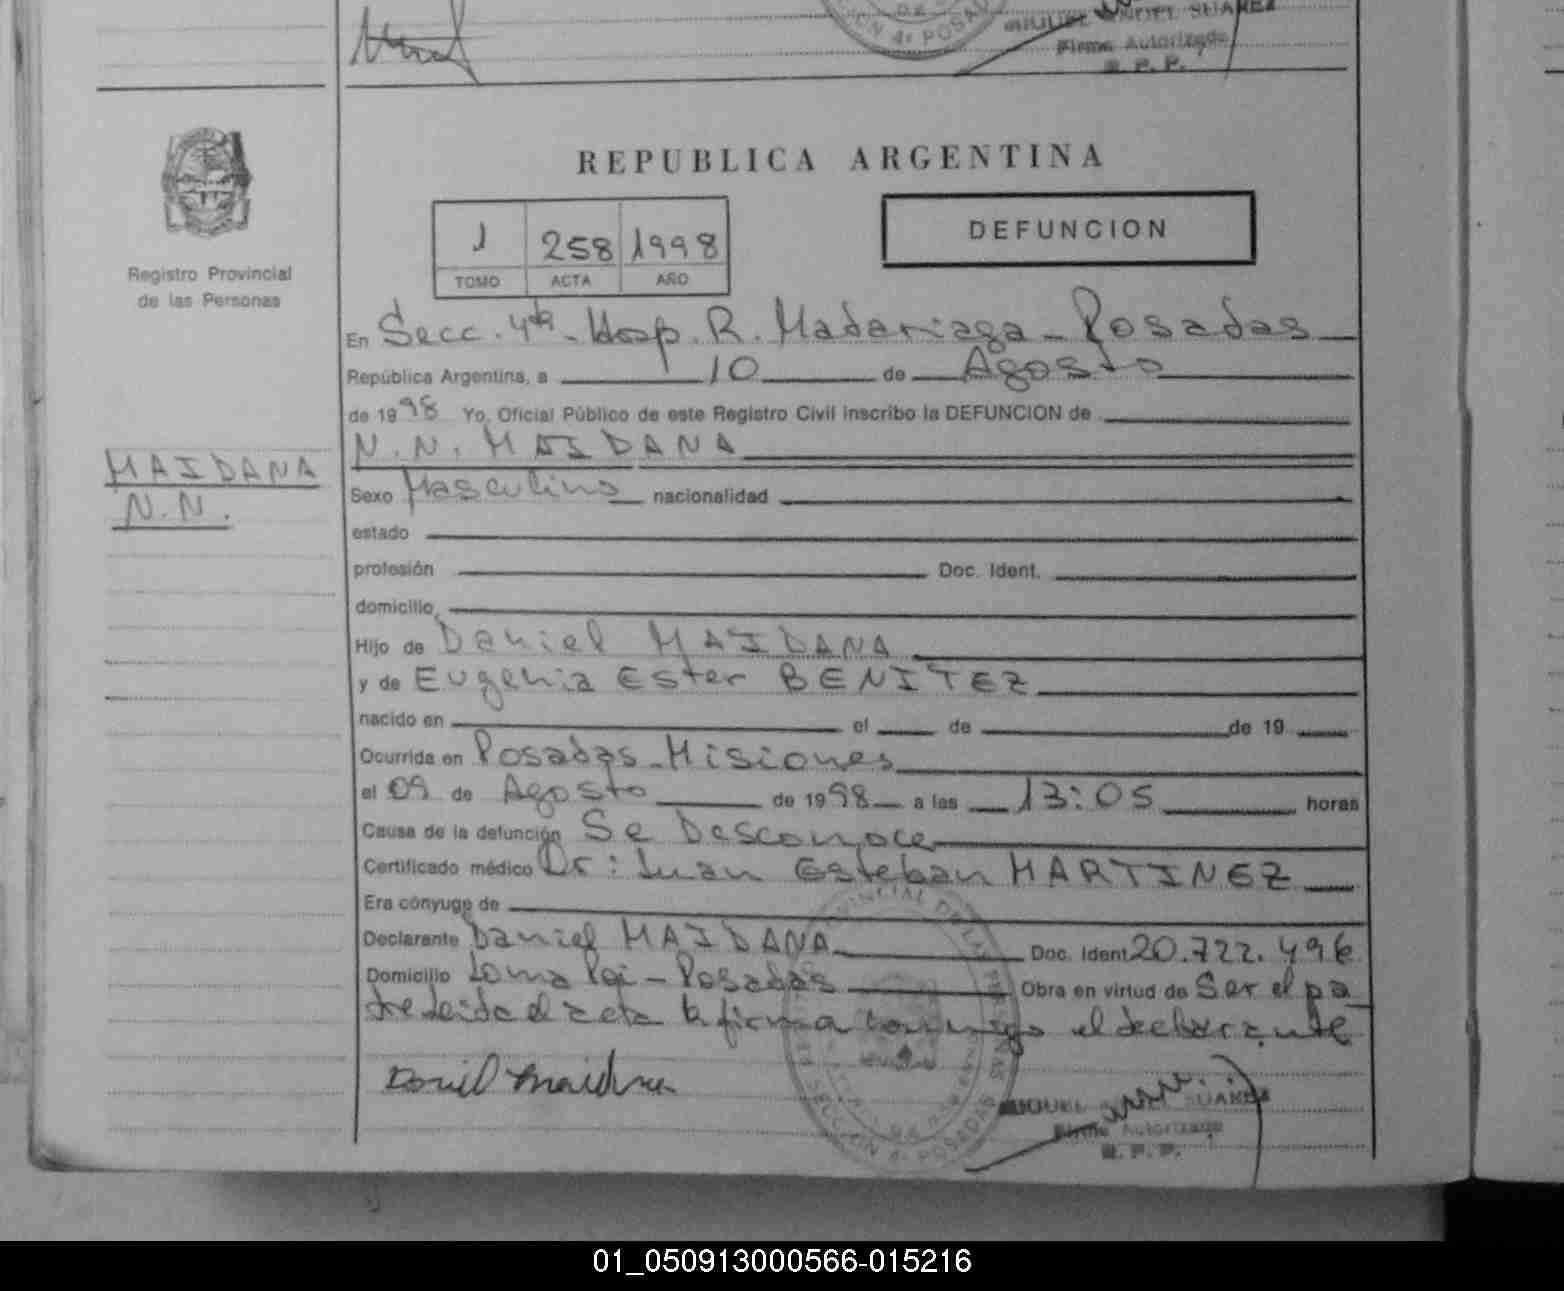 CION 4ª POSADAS
MIGUEL ANGEL SUAREZ
Firma Autorizada
R. P. P.
REPUBLICA ARGENTINA
1 258 1998
TOMO ACTA AÑO
DEFUNCION
Registro Provincial
de las Personas
En Secc. 4ta - Hosp. R. Madariaga - Posadas
República Argentina, a 10 de Agosto
de 1998 Yo, Oficial Público de este Registro Civil inscribo la DEFUNCION de
N.N. MAIDANA
MAIDANA
N.N.
Sexo Masculino nacionalidad
estado
profesión Doc. Ident.
domicilio
Hijo de Daniel MAIDANA
y de Eugenia Ester BENITEZ
nacido en el de de 19
Ocurrida en Posadas - Misiones
el 09 de Agosto de 1998 a las 13:05 horas
Causa de la defunción Se Desconoce
Certificado médico Dr: Juan Esteban MARTINEZ
Era cónyuge de
Declarante Daniel MAIDANA Doc. Ident 20.722.496
Domicilio Loma Poi - Posadas Obra en virtud de Ser el pa
dre leida el acta la firma conmigo el declarante
Daniel Maidana
SECCION 4ª POSADAS
MIGUEL ANGEL SUAREZ
Firma Autorizada
R. P. P.
01_050913000566-015216